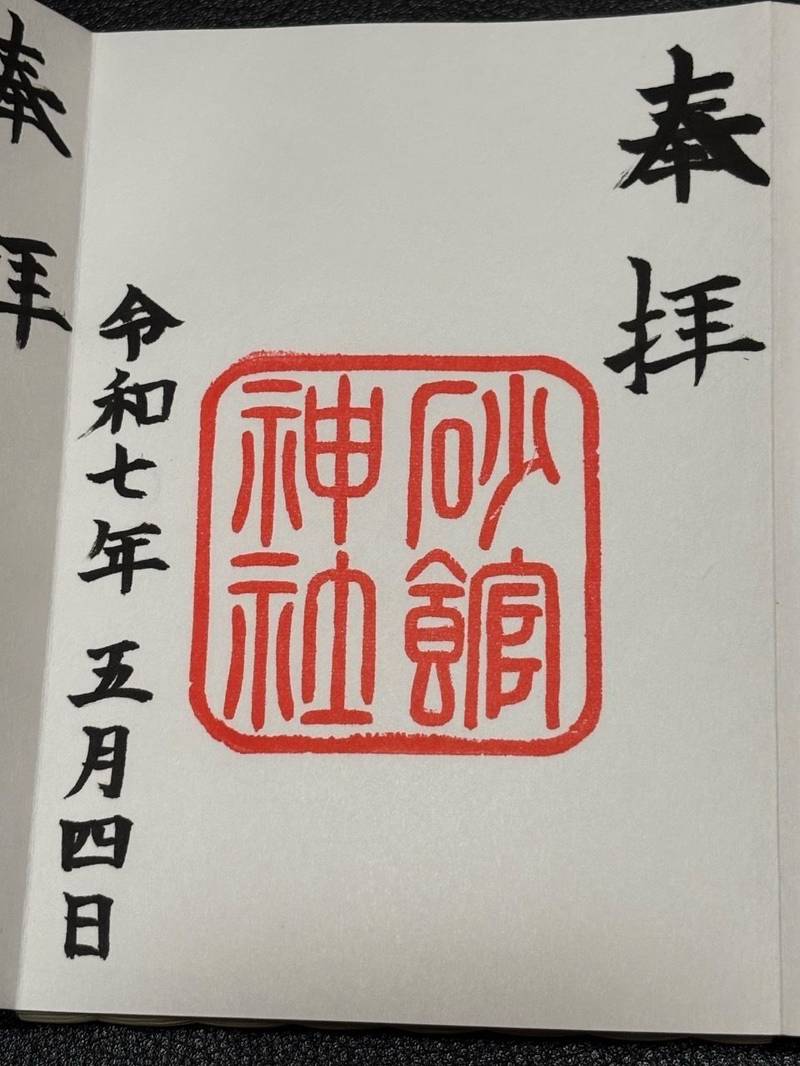 奉拝
砂館
神社
令和七年 五月四日
奉拝